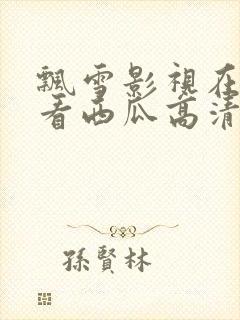 飄雪影視在
看西瓜高清
孫賢林